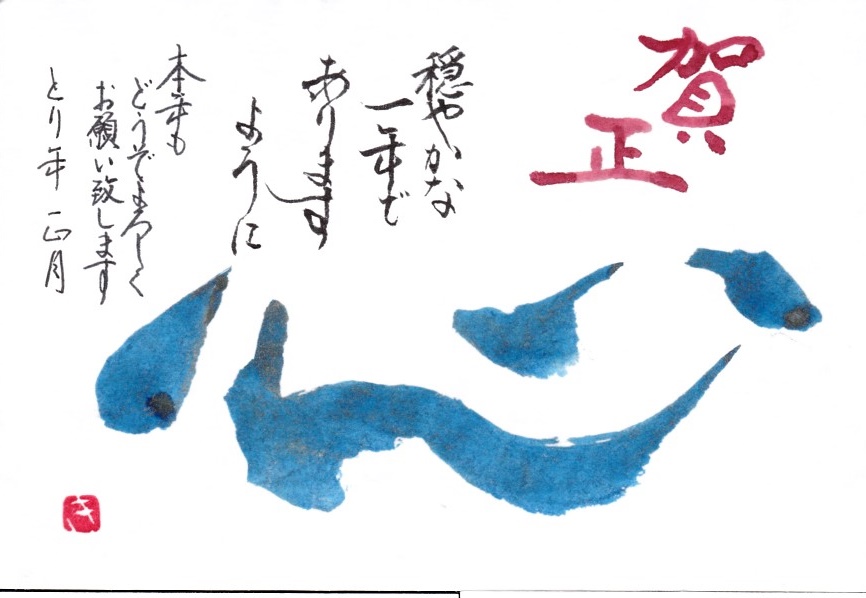 賀
正
穏やかな
一年で
あります
ように
本年も
どうぞよろしく
お願い致します
とり年 正月
心
き